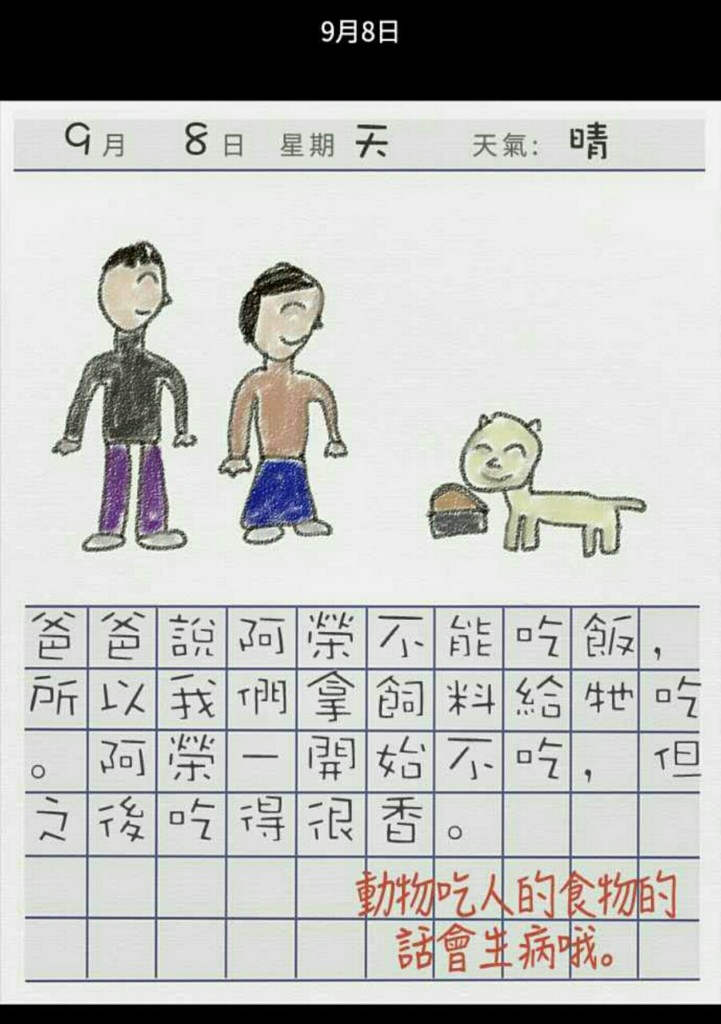 9月8日
9月 8日 星期 天 天氣: 晴
爸爸說阿榮不能吃飯，
所以我們拿飼料給牠吃
。阿榮一開始不吃，但
之後吃得很香。
動物吃人的食物的
話會生病哦。